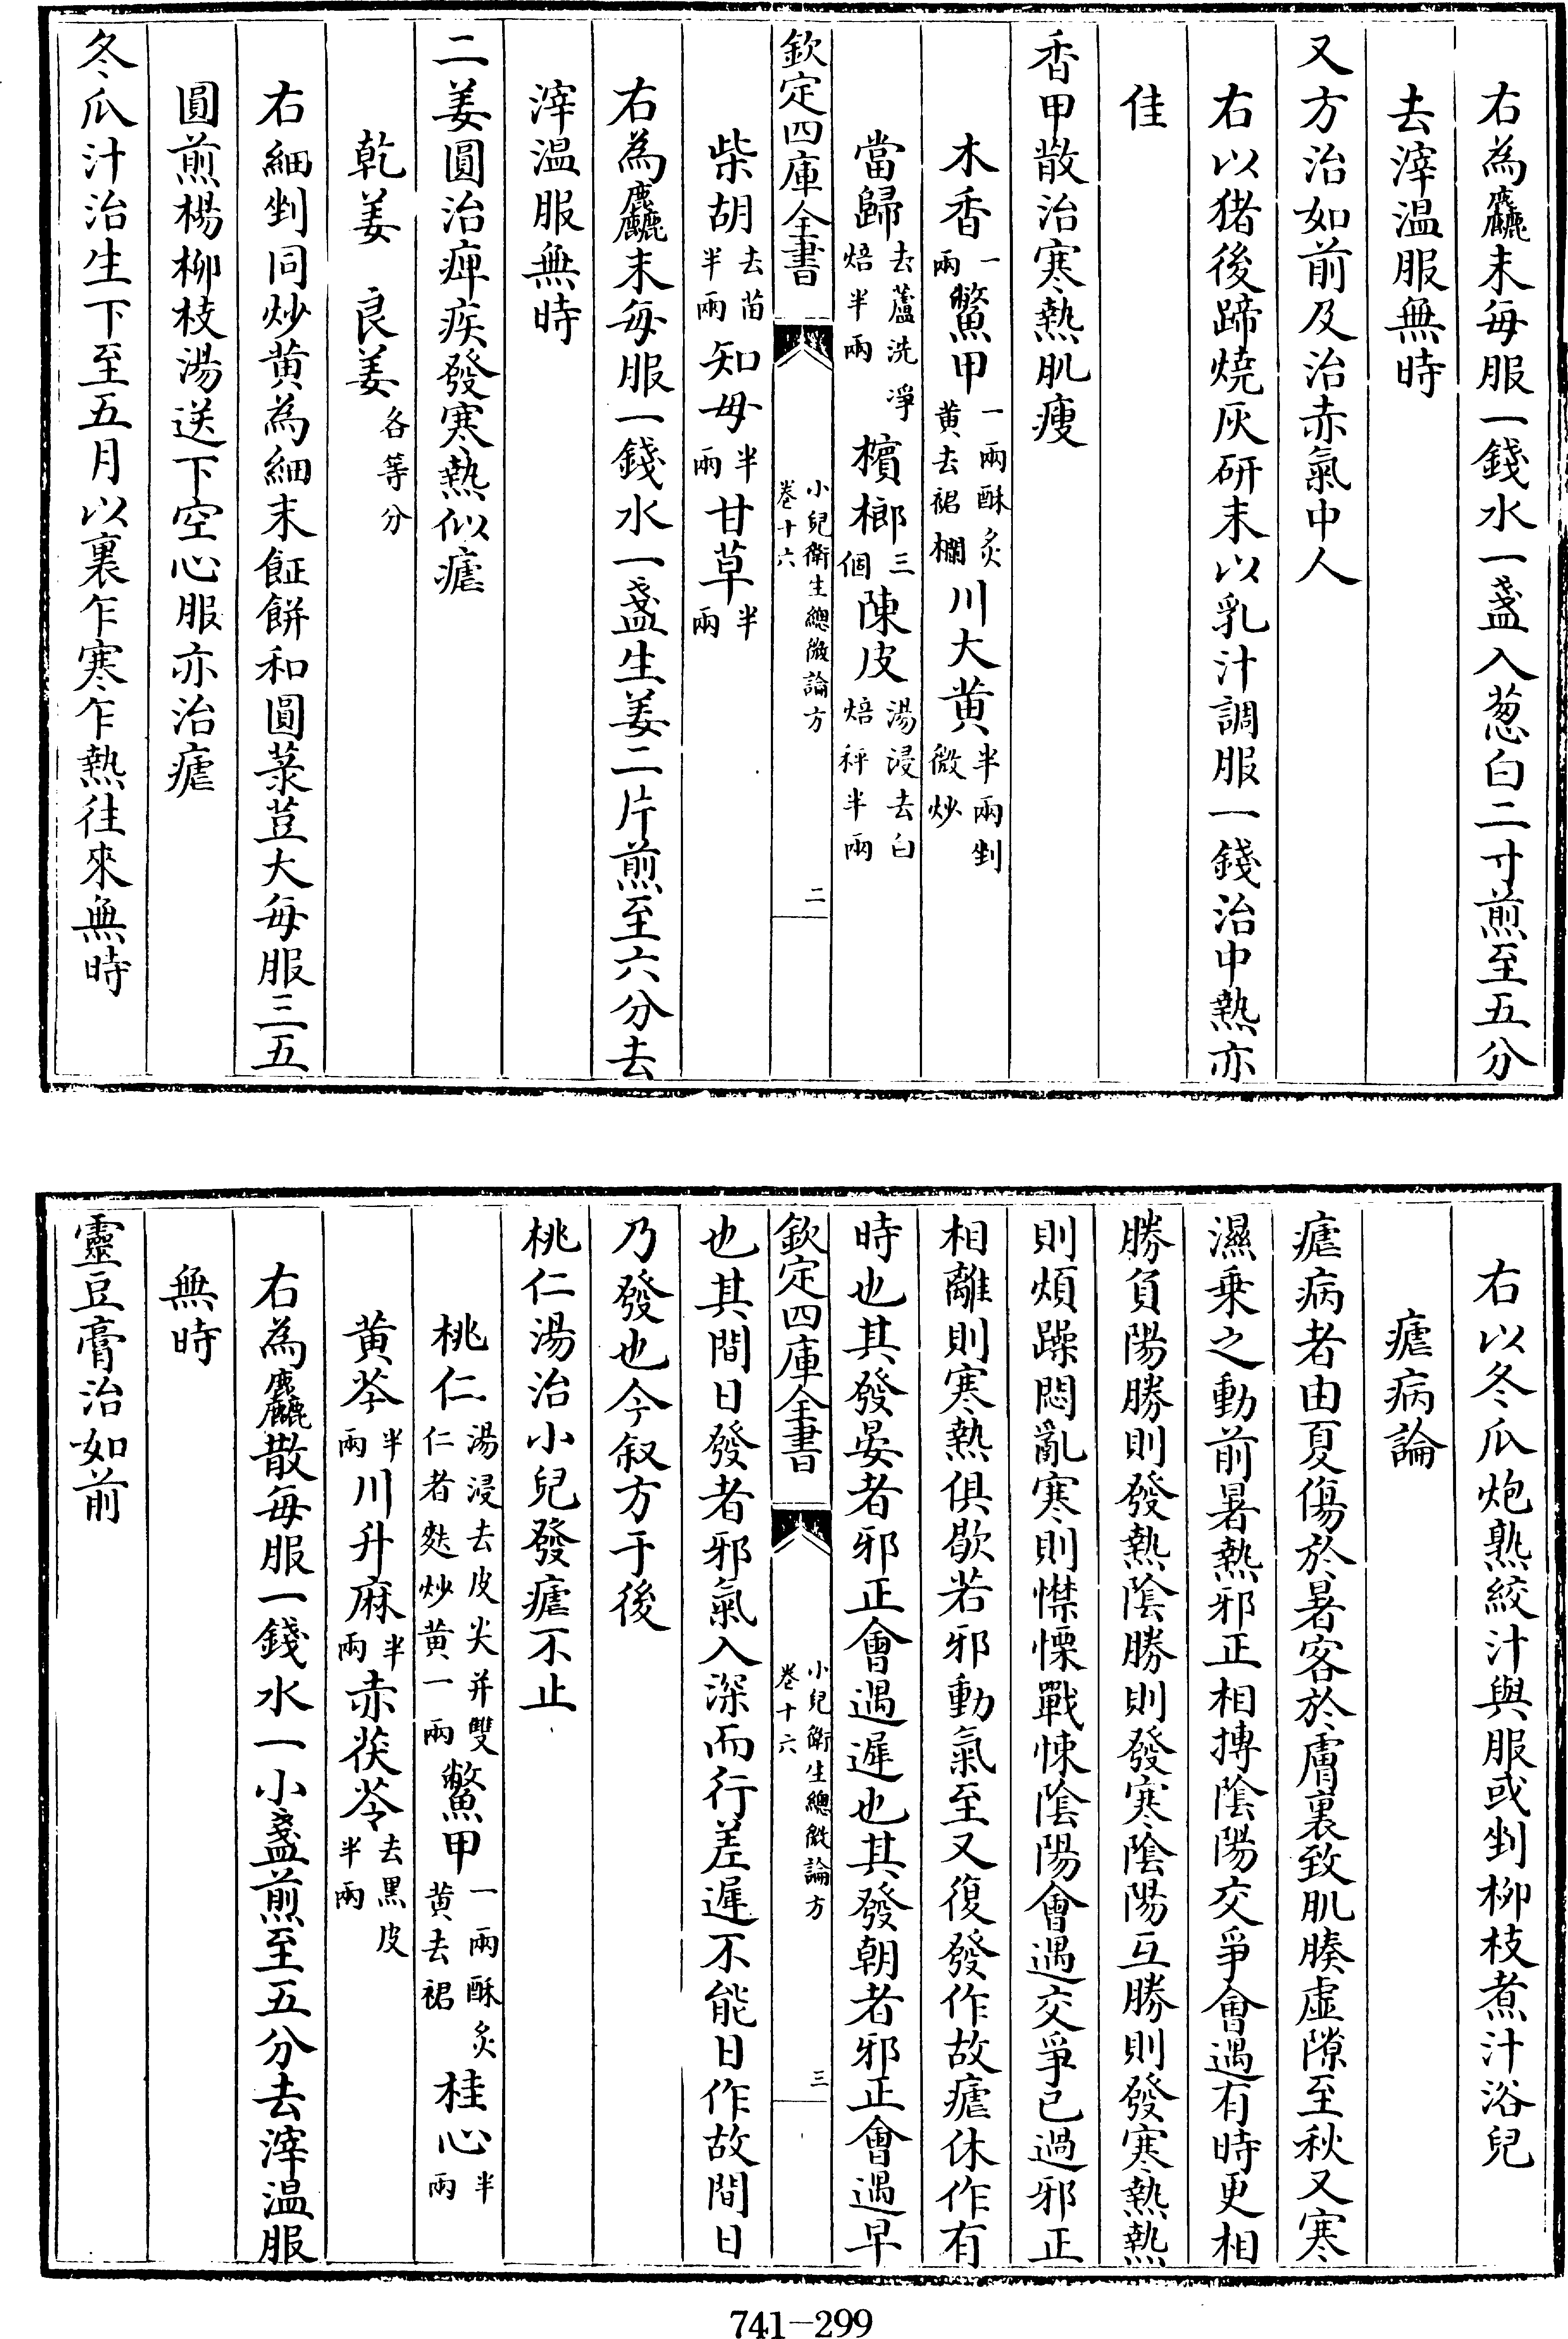 右為麤末每服一錢水一盞入葱白二寸煎至五分
去滓温服無時
又方治如前及治赤氣中人
右以猪後蹄燒灰研末以乳汁調服一錢治中熱亦
佳
香甲散治寒熱肌瘦
木香一兩鱉甲一兩酥炙黄去裙襴川大黄半兩剉微炒
當歸去蘆洗淨焙半兩檳榔三個陳皮湯浸去白焙秤半兩
欽定四庫全書 小兒衛生總微論方卷十六 二
柴胡去苗半兩知母半兩甘草半兩
右為麤末每服一錢水一盞生姜二片煎至六分去
滓温服無時
二姜圓治痺疾發寒熱似瘧
乾姜 良姜各等分
右細剉同炒黄為細末飪餅和圓菉荳大每服三五
圓煎楊柳枝湯送下空心服亦治瘧
冬瓜汁治生下至五月以裏乍寒乍熱往來無時
右以冬瓜炮熟絞汁與服或剉柳枝煮汁浴兒
瘧病論
瘧病者由夏傷於暑客於膚裏致肌腠虛隙至秋又寒
濕乗之動前暑熱邪正相搏陰陽交爭會遇有時更相
勝負陽勝則發熱陰勝則發寒陰陽互勝則發寒熱熱
則煩躁悶亂寒則懍慄戰悚陰陽會遇交爭已過邪正
相離則寒熱俱歇若邪動氣至又復發作故瘧休作有
時也其發晏者邪正會遇遲也其發朝者邪正會遇早
欽定四庫全書 小兒衛生總微論方卷十六 三
也其間日發者邪氣入深而行差遲不能日作故間日
乃發也今叙方于後
桃仁湯治小兒發瘧不止
桃仁湯浸去皮尖并雙仁者麩炒黄一兩鱉甲一兩酥炙黄去裙桂心半兩
黄芩半兩川升麻半兩赤茯苓去黑皮半兩
右為麤散每服一錢水一小盞煎至五分去滓温服
無時
靈豆膏治如前
741-299